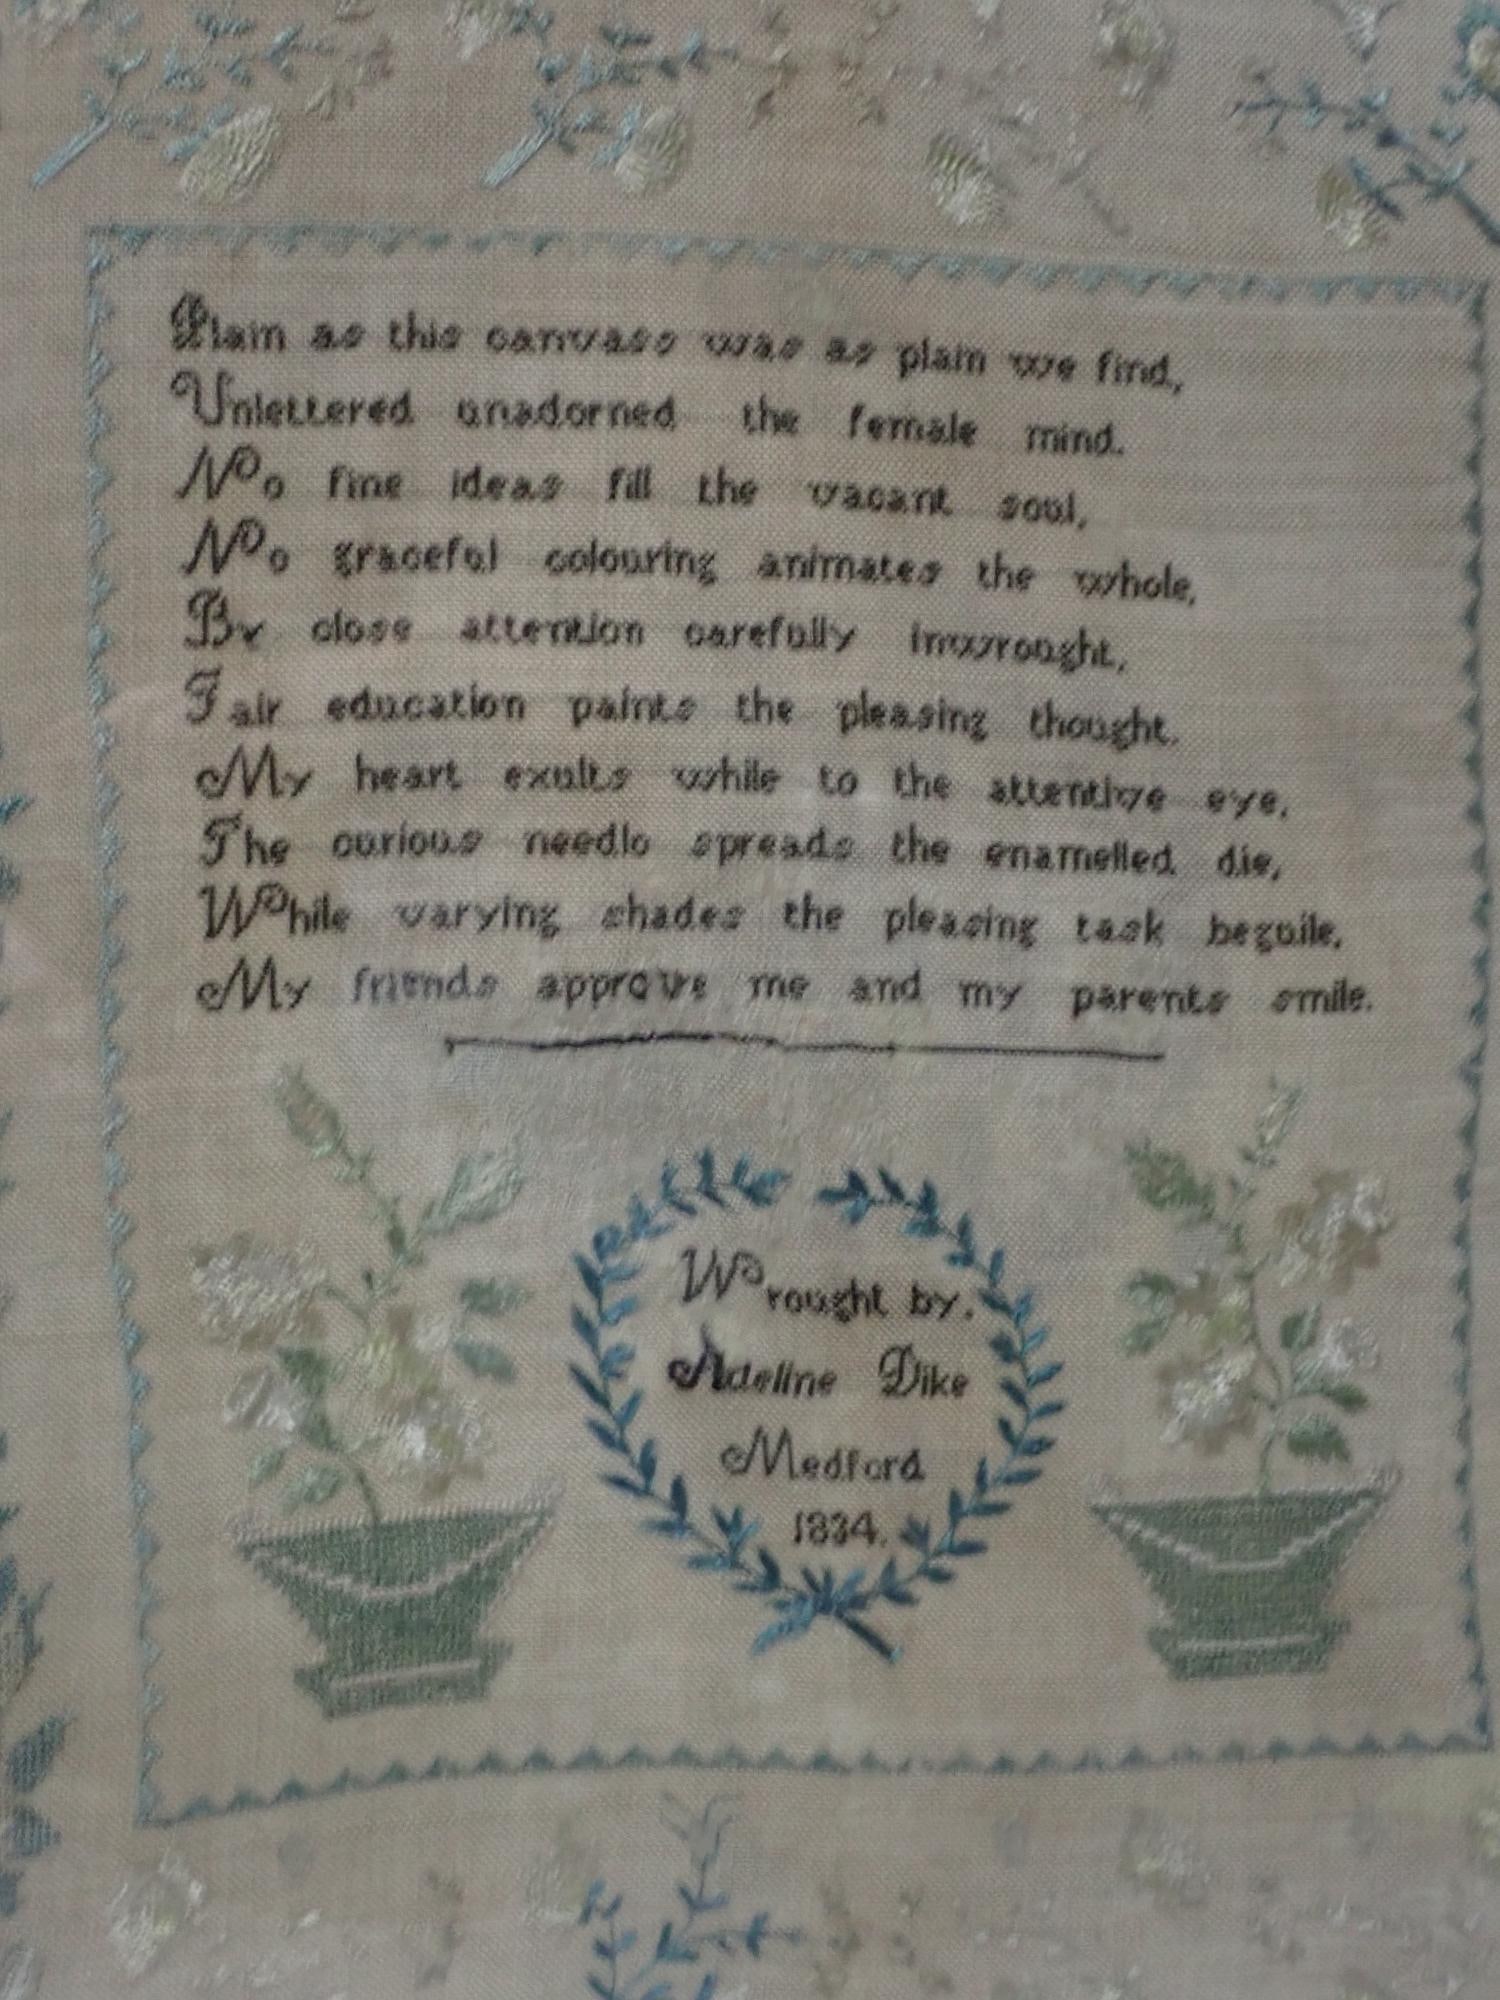 Plain as this canvass was as plain we find,
Unlettered unadorned the female mind.
No fine ideas fill the vacant soul,
No graceful colouring animates the whole,
By close attention carefully inwrought,
Fair education paints the pleasing thought.
My heart exults while to the attentive eye,
The curious needle spreads the enamelled die,
While varying shades the pleasing task beguile,
My friends approve me and my parents smile.
Wrought by.
Adeline Dike
Medford
1834.